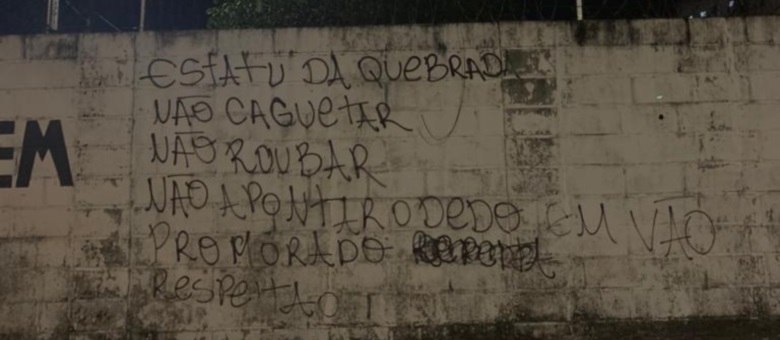 EM
ESTATU DA QUEBRADA
NÃO CAGUETAR
NÃO ROUBAR
NÃO APONTAR O DEDO EM VÃO
PRO MORADO
RESPEITAO